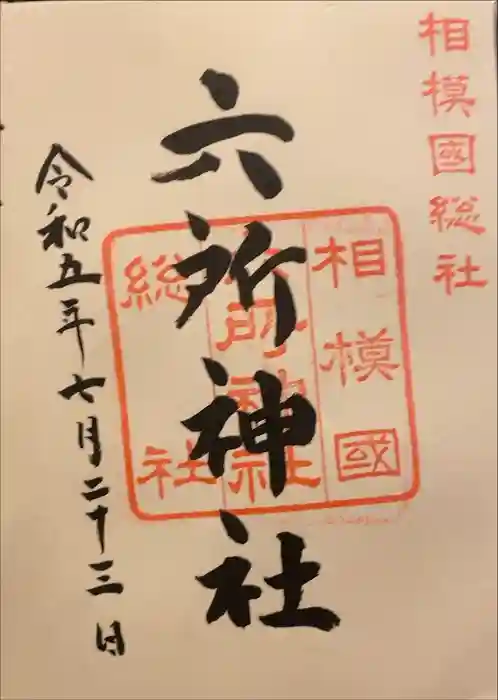 相模國総社
六所神社
相模國
六所神社
総社
令和五年七月二十三日